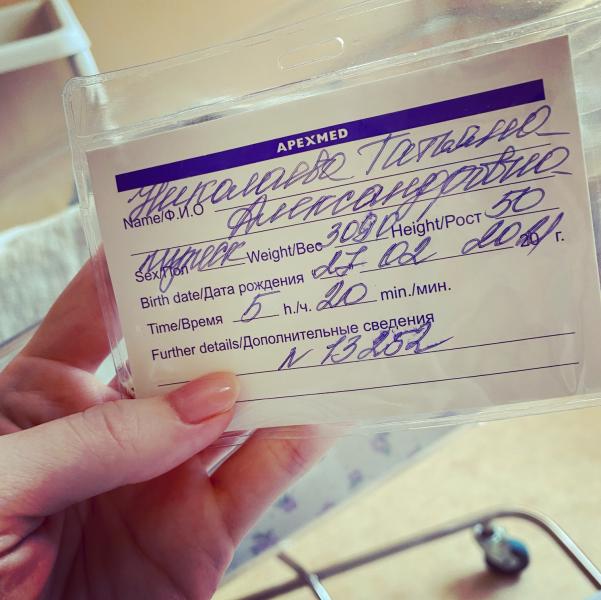 APEXMED
Name/Ф.И.О Николаева Татьяна
Александровна
Sex/Пол мужск Weight/Вес 3090 Height/Рост 50
Birth date/Дата рождения 27 02 2021 г.
Time/Время 5 h./ч. 20 min./мин.
Further details/Дополнительные сведения
N 13252